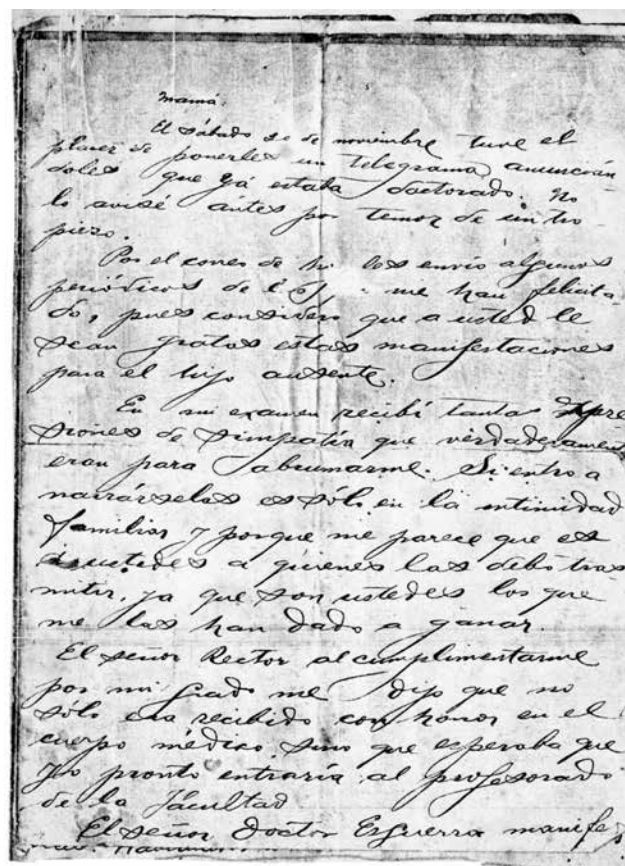 Mamá:
El sábado 20 de noviembre tuve el
placer de ponerles un telegrama anuncián
doles que yá estaba doctorado. No
lo avisé ántes por temor de un tro
piezo.
Por el correo de hoy les envío algunos
periódicos de los que me han felicita
do, pues considero que a usted le
sean gratas estas manifestaciones
para el hijo ausente.
En mi examen recibí tantas expre
siones de simpatía que verdaderament
eran para abrumarme. Si entro a
narrárselas es sólo en la intimidad
familiar y porque me parece que es
a ustedes a quienes las debo tras
mitir, ya que son ustedes los que
me las han dado a ganar.
El señor Rector al cumplimentarme
por mi grado me dijo que no
sólo era recibido con honor en el
cuerpo médico sino que esperaba que
yo pronto entraría al profesorado
de la facultad
El señor Doctor Esguerra manifes